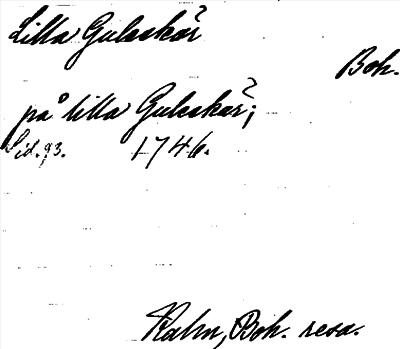 Lilla Guleskär
Boh.
på lilla Guleskär;
Sid. 93. 1746.
Kalm, Boh. resa.